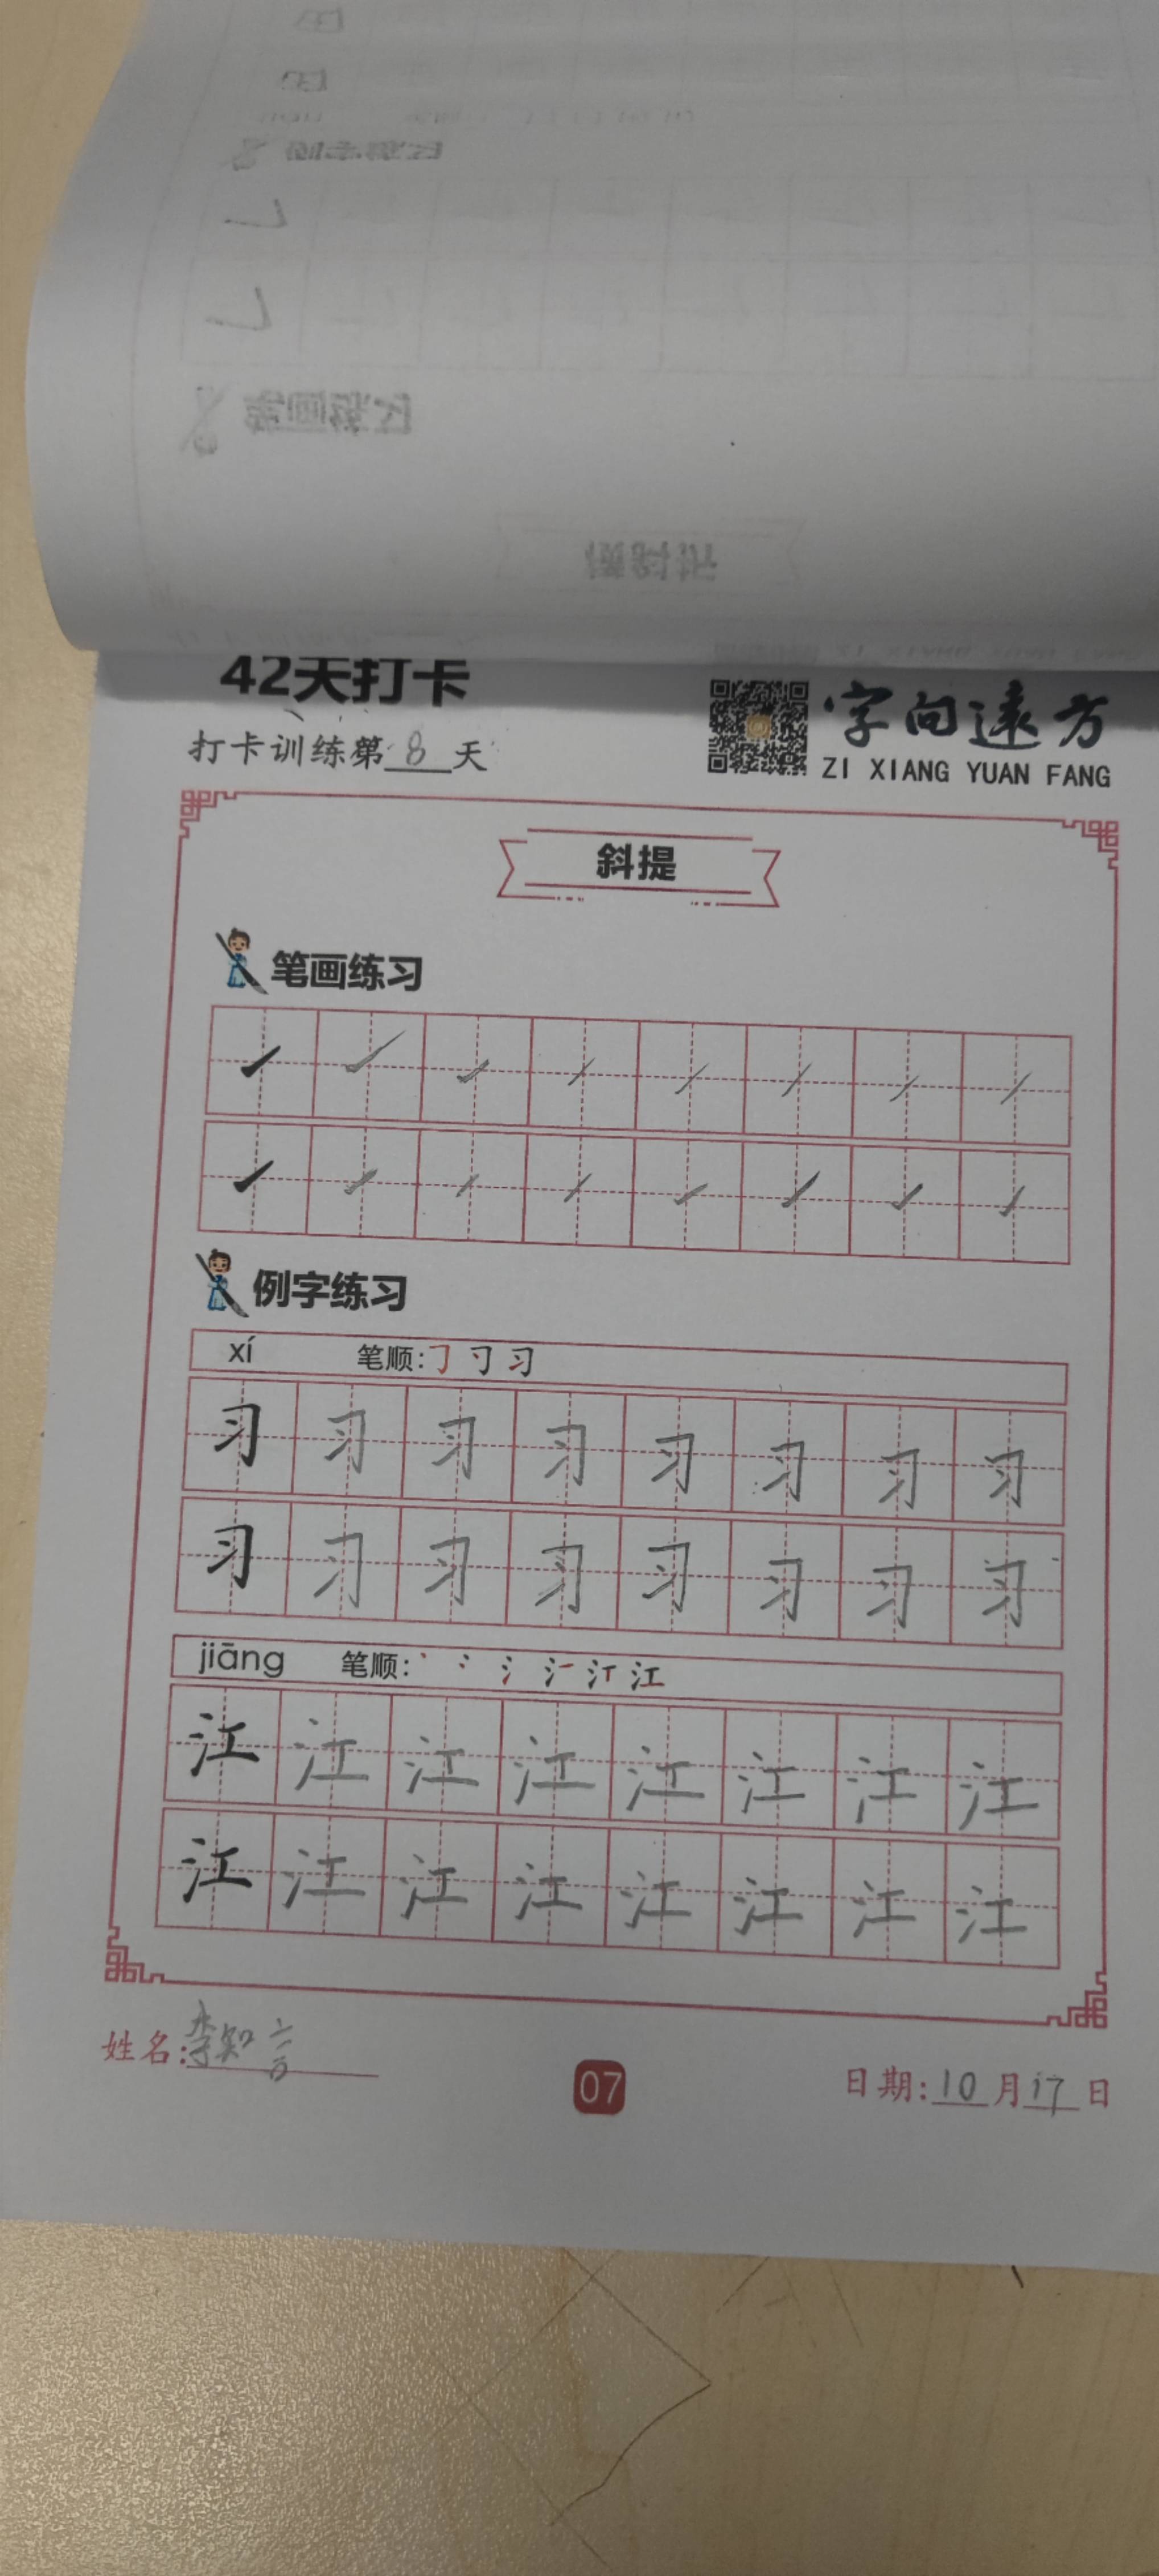 42天打卡
打卡训练第 8 天
字向远方
ZI XIANG YUAN FANG
斜提
笔画练习
例字练习
xí 笔顺: 习
习 习 习 习 习 习 习 习
习 习 习 习 习 习 习 习
jiāng 笔顺: 丶 冫 氵 江
江 江 江 江 江 江 江 江
江 江 江 江 江 江 江 江
姓名: 李知言
07
日期: 10 月 17 日